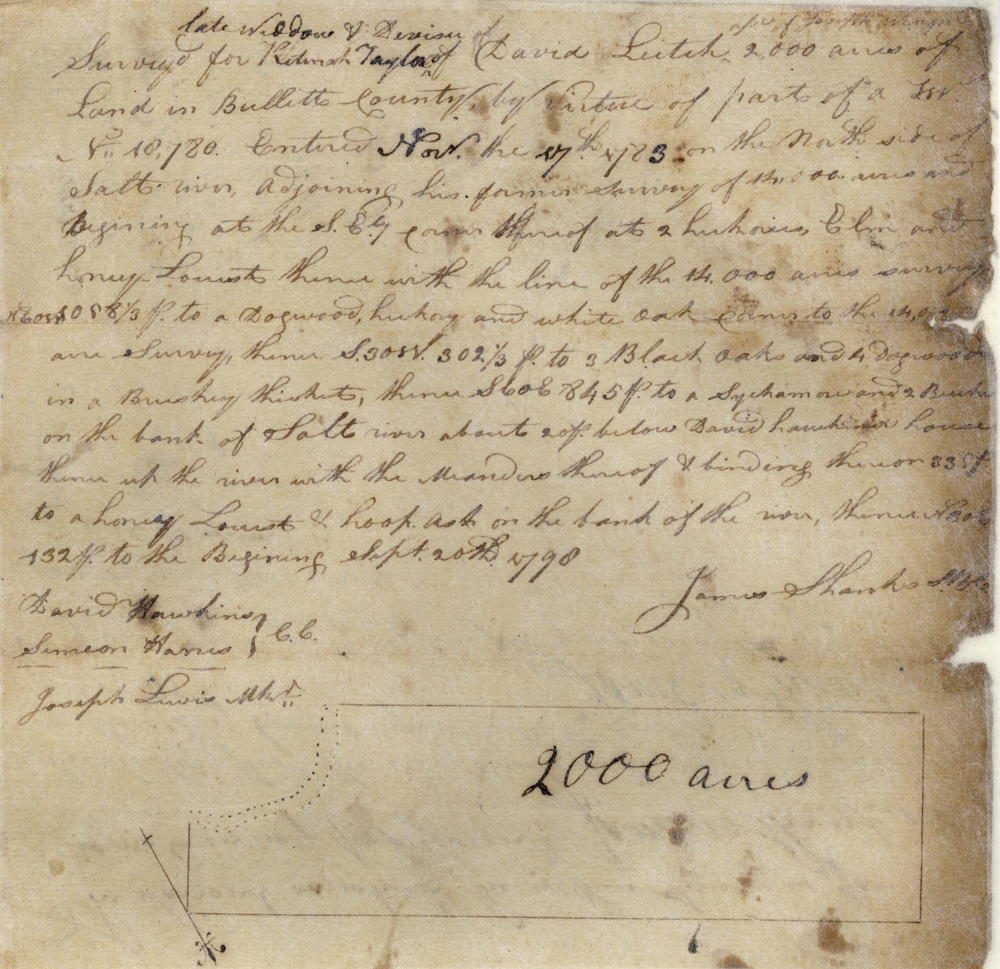 late Widdow & Devisee of
Survey'd for Keturah Taylor of David Leitch 2000 acres of
Land in Bullitt County, by virtue of parts of a Tr.
No. 18,780. Entered Nov. the 17th 1783 on the North side of
Salt river, Adjoining his former survey of 14,000 acres and
Begining at the S. Ely corner thereof at 2 hickories Elm and
honey Locust thence with the line of the 14,000 acres survey
N60W 1058 1/3 p. to a Dogwood, hickory and white oak Corner to the
acre Survey, thence S.30W. 302 1/3 p. to 3 Black oaks and 4 dogwoods
in a Brushey thicket, thence S60E 845 p. to a Sychamore and 2
on the bank of Salt river about 20 p. below David hawkins's house
thence up the river with the Meanders thereof & binding thereon
to a honey Locust & hoop Ash on the bank of the river, thence N30E
132 p. to the Begining Sept. 20th. 1798
James Shanks
David Hawkins
Simeon Harris } C.C.
Joseph Lewis Mkr.
2000 acres